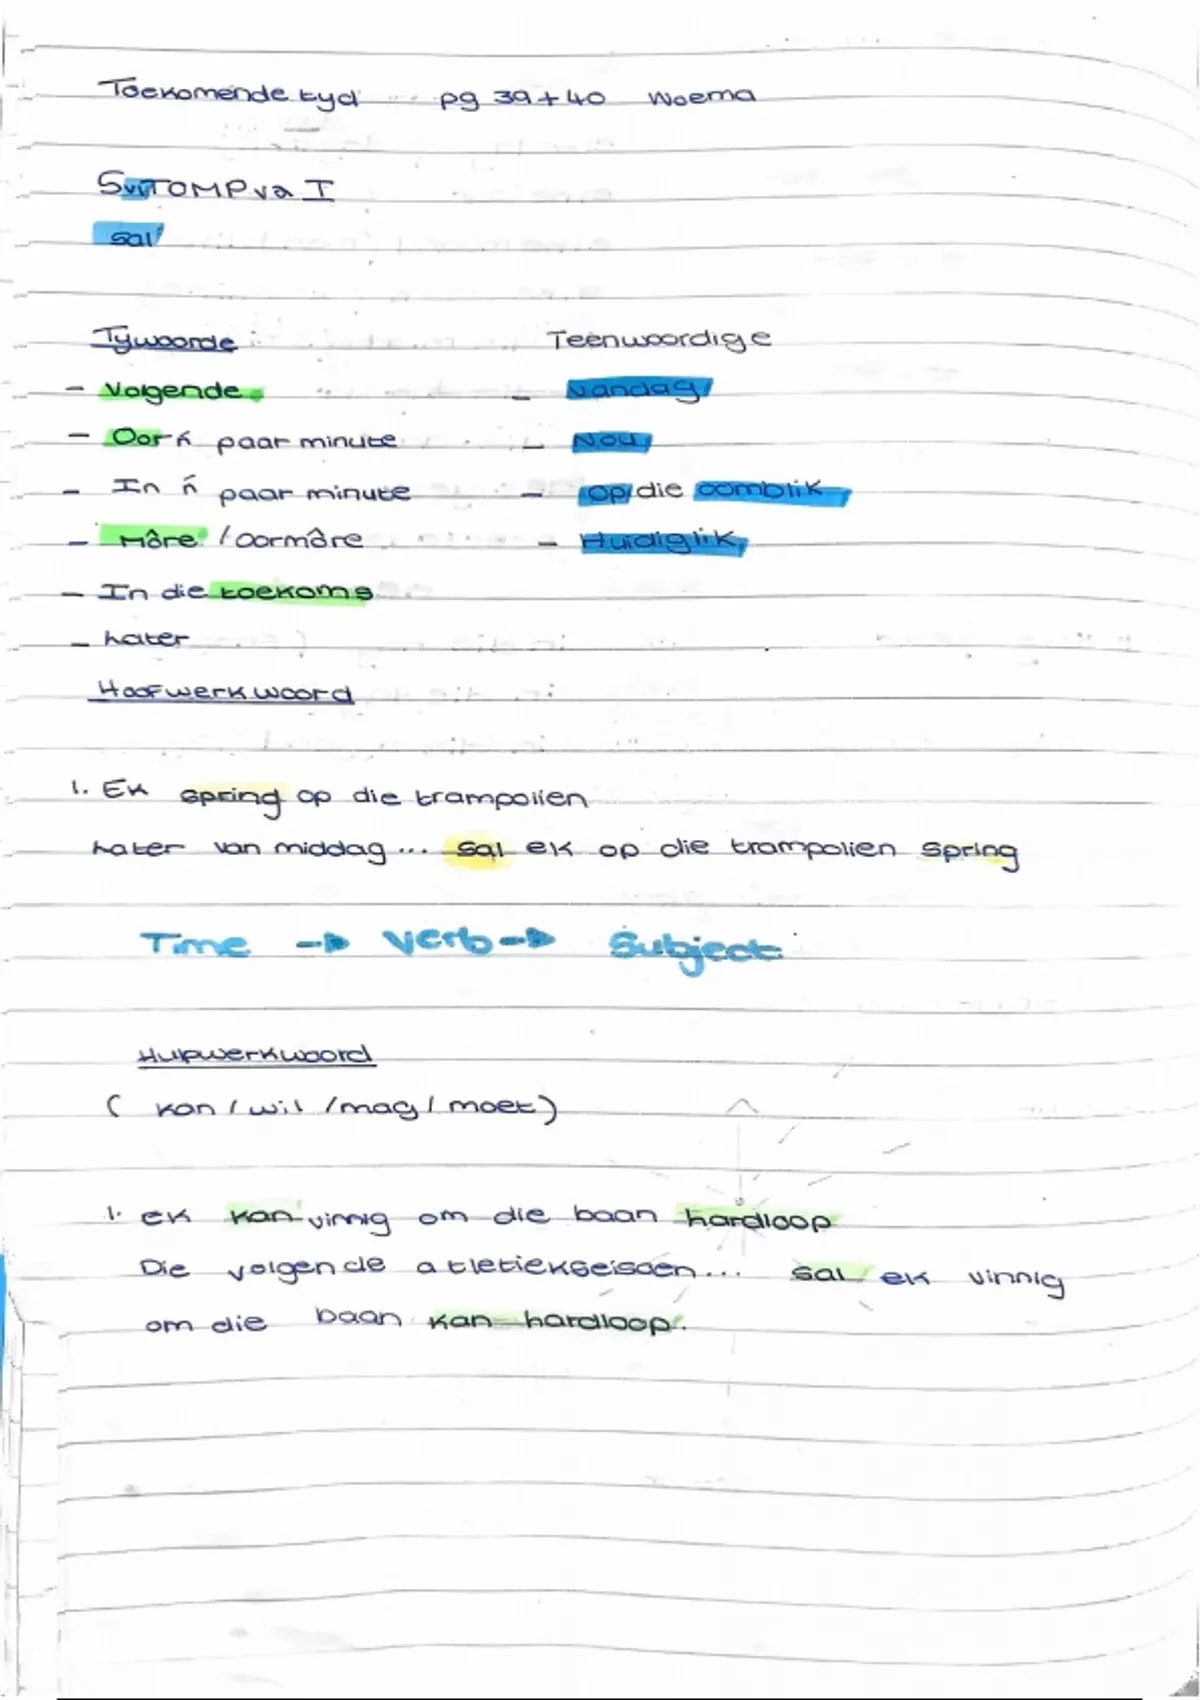 Toekomende tyd pg 39 + 40 Woema
Sv1TOMPv2 I
sal
Tywoorde : Teenwoordige
- Volgende - Vandag
- Oor ń paar minute - Nou
- In ń paar minute - Op die oomblik
- Môre / Oormôre - Huidiglik
- In die toekoms
- Later
Hoofwerkwoord
1. Ek spring op die trampolien
Later van middag ... sal ek op die trampolien spring
Time → Verb → Subject
Hulpwerkwoord
( kan / wil / mag / moet )
1. ek kan vinnig om die baan hardloop
Die volgende atletiekseisoen ... sal ek vinnig
om die baan kan hardloop.